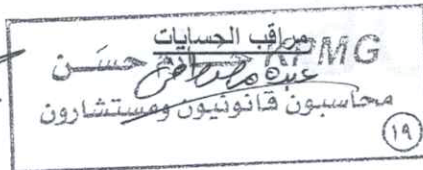 مراقب الحسابات
KPMG حازم حسن
محاسبون قانونيون ومستشارون
(١٩)